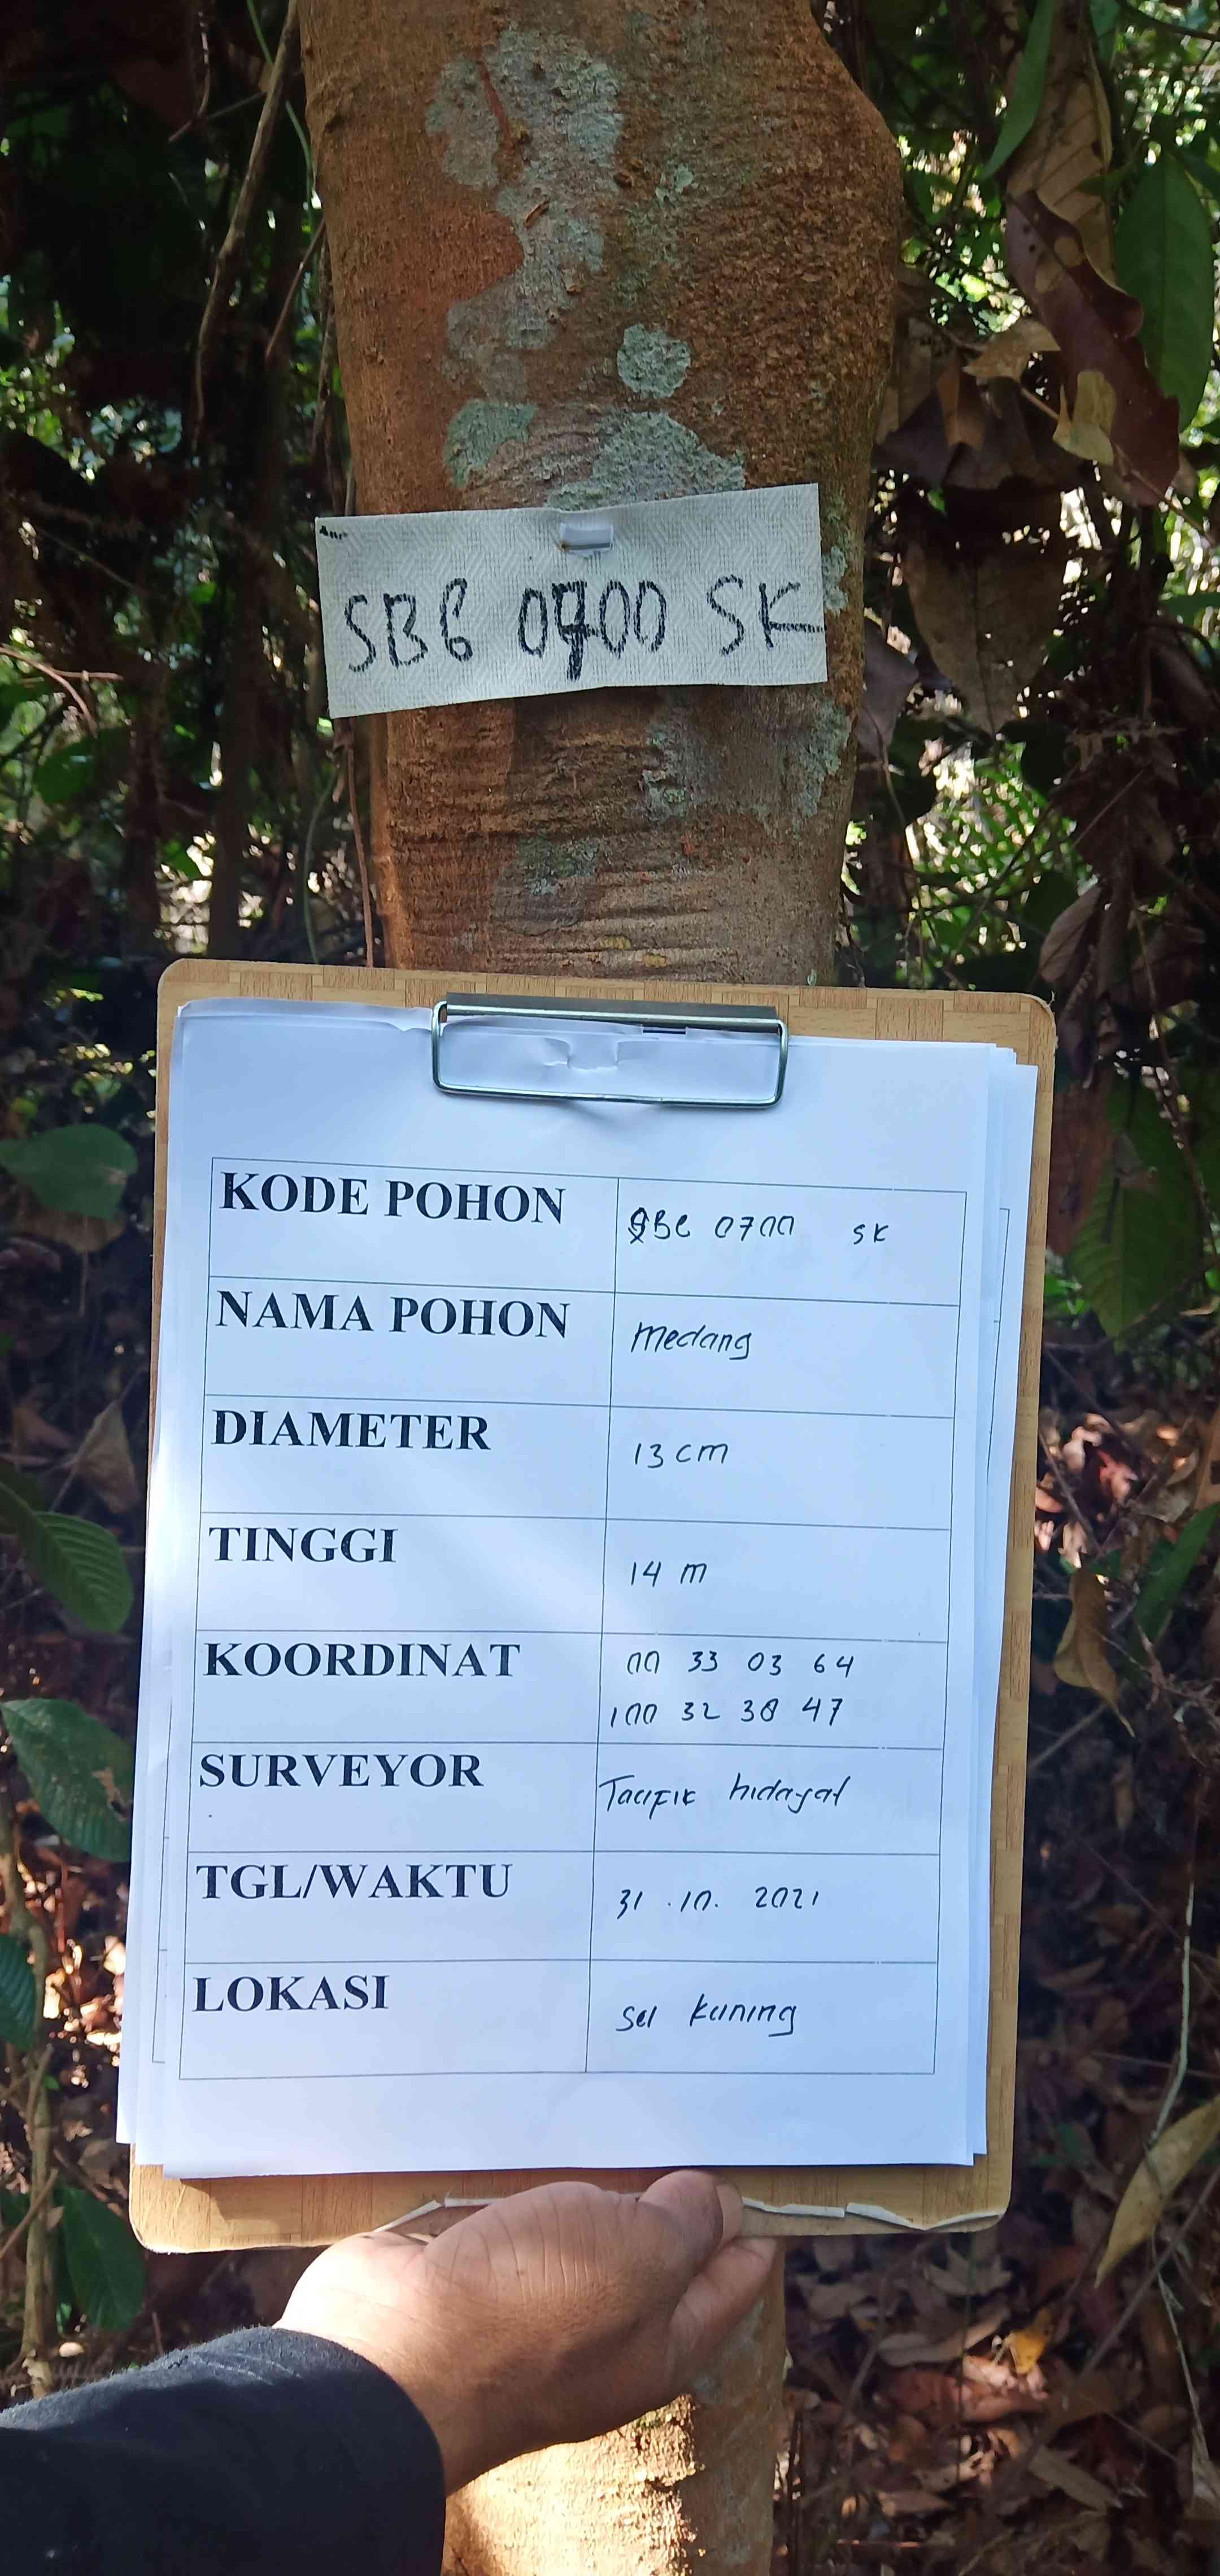 SBG 0700 SK
KODE POHON SBG 0700 SK
NAMA POHON Medang
DIAMETER 13 cm
TINGGI 14 m
KOORDINAT 00 33 03 64
100 32 38 47
SURVEYOR Taufik hidayat
TGL/WAKTU 31.10.2021
LOKASI sei kuning